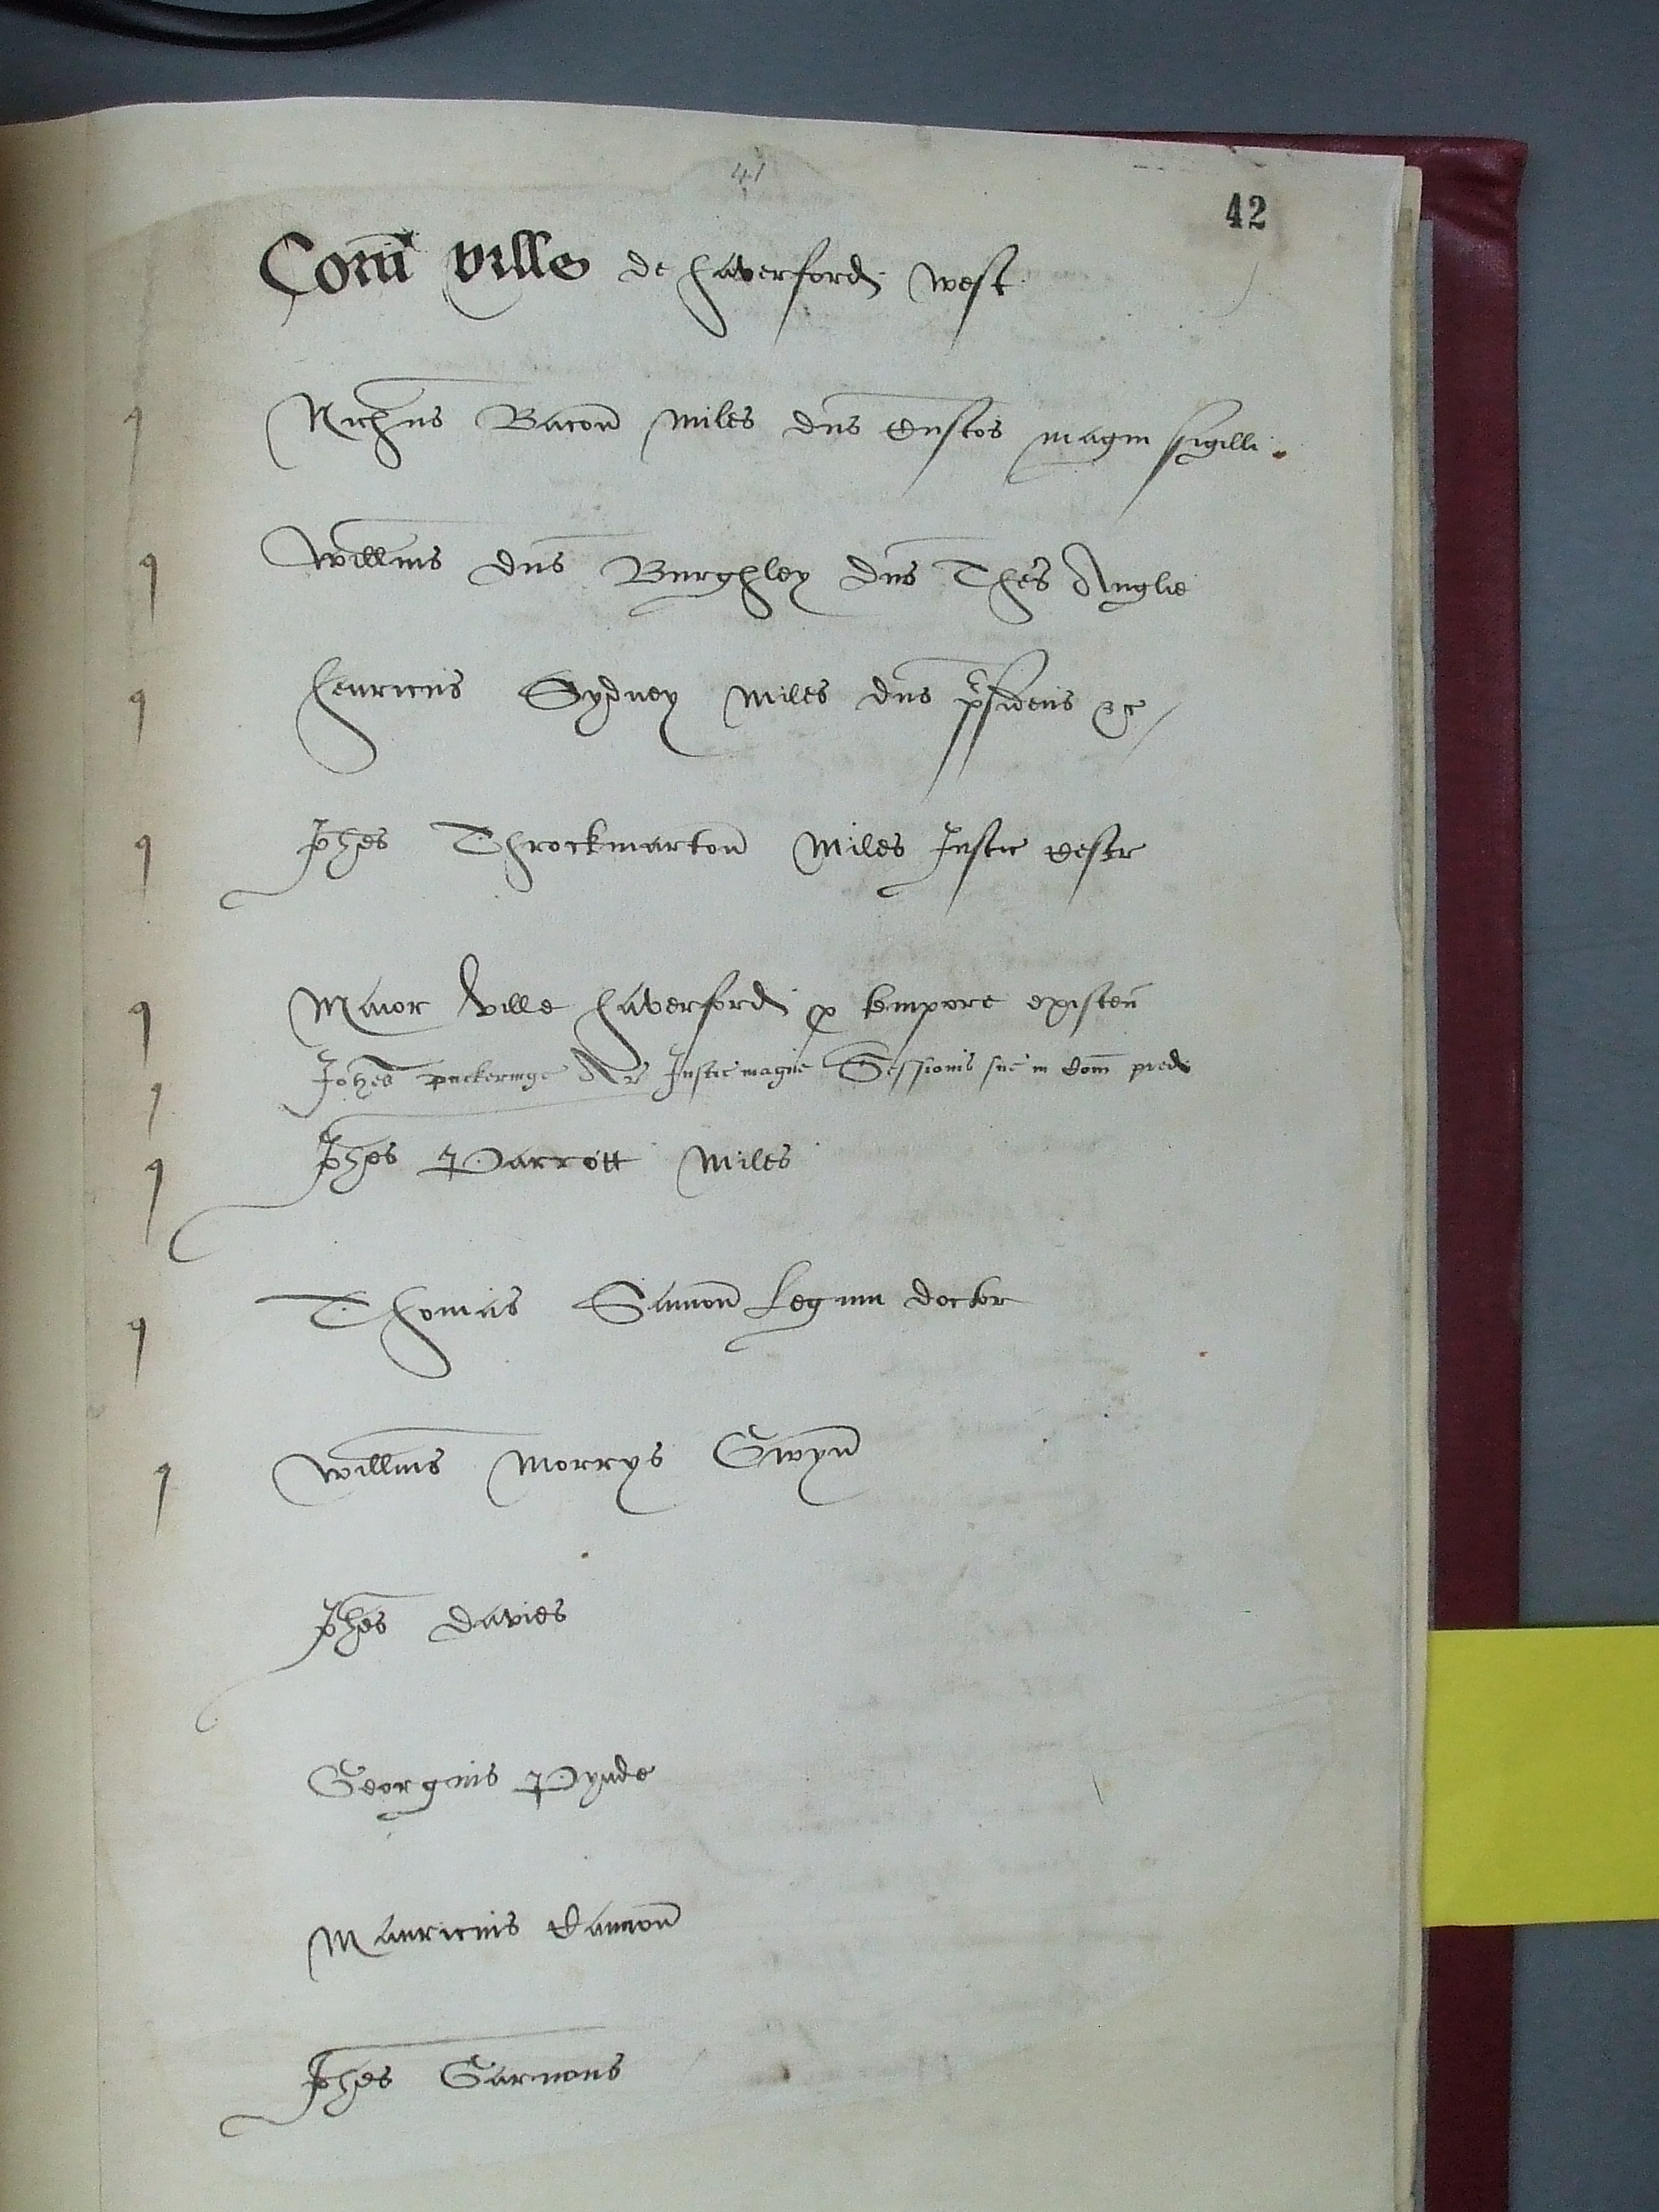 41
42
Com̄ ville de haverford west
Nich̄us Bacon̄ miles dn̄s Custos magni sigilli.
Willm̄us dn̄s Burghley dn̄s Thes Anglie
henricus Sydney miles dn̄s p̄sidens &c
Joh̄es Throckmarton̄ miles Justic Cestr
Maior ville haverford p tempore existen̄
Joh̄es Puckeringe Ar Justic magne Sessionis sue in Com̄ pred
Joh̄es Parrott miles
Thomas Canon̄ legum doctor
Willm̄us Morrys Gwyn̄
Joh̄es Davies
Georgius Pynde
Mauricius Canon̄
Joh̄es Garnons